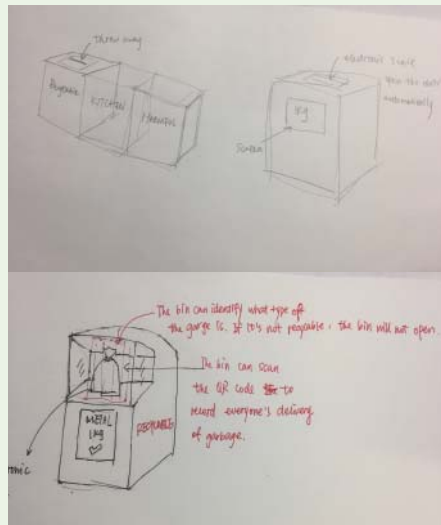 throw away
KITCHEN
electronic scale
open the
automatically
1kg
Screen
The bin can identify what type off
the garge is. If it's not recyeable, the bin will not open.
The bin can scan
the QR code to
record everyone's delivery
of garbage.
METAL
1kg
RECYCLABLE
onic